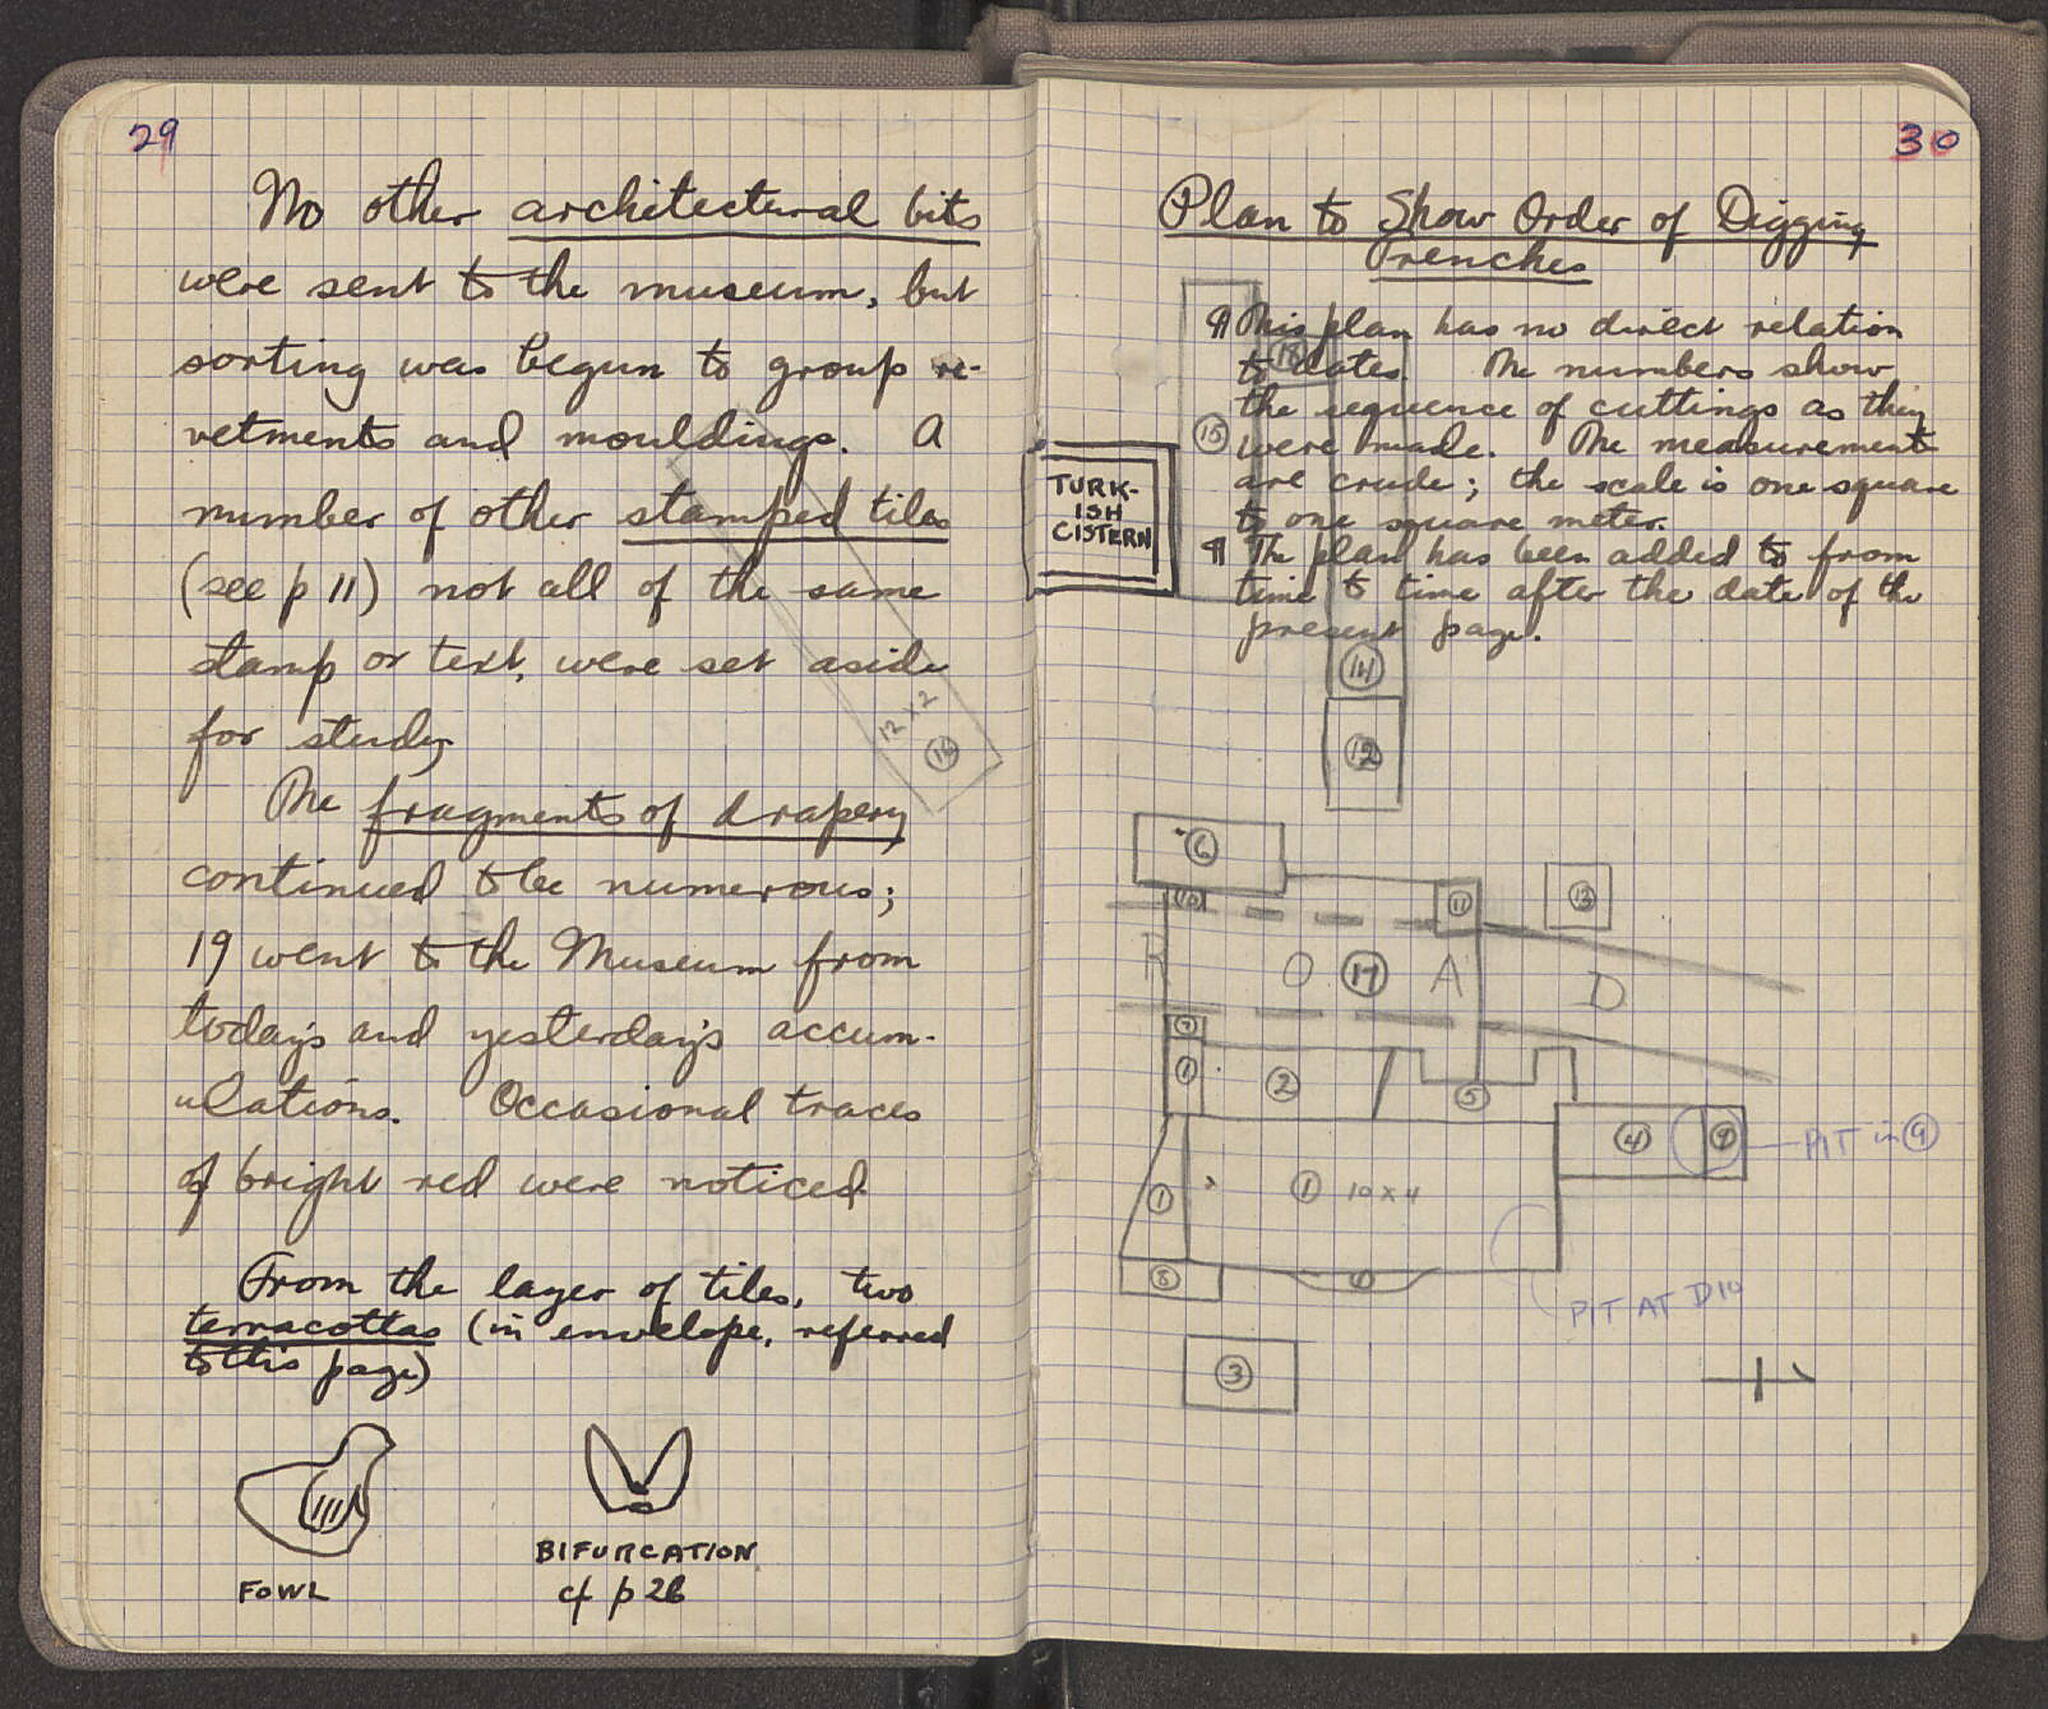 29
No other architectural bits
were sent to the museum, but
sorting was begun to group re-
vetments and mouldings. A
number of other stamped tiles
(see p 11) not all of the same
stamp or text, were set aside
for study
12 x 2
The fragments of drapery
continued to be numerous;
19 went to the Museum from
today's and yesterday's accum-
ulations. Occasional traces
of bright red were noticed
From the layer of tiles, two
terracottas (in envelope, referred
to this page)
FOWL
BIFURCATION
cf p 26
30
Plan to Show Order of Digging
Trenches
¶ This plan has no direct relation
to dates. The numbers show
the sequence of cuttings as they
were made. The measurements
are crude; the scale is one square
to one square meter.
¶ The plan has been added to from
time to time after the date of the
present page.
18
15
TURK-
ISH
CISTERN
14
12
6
10
11
13
R O 17 A D
7
1
2
5
4
9
PIT in 9
1
1 10 x 4
8
1
PIT AT D10
3